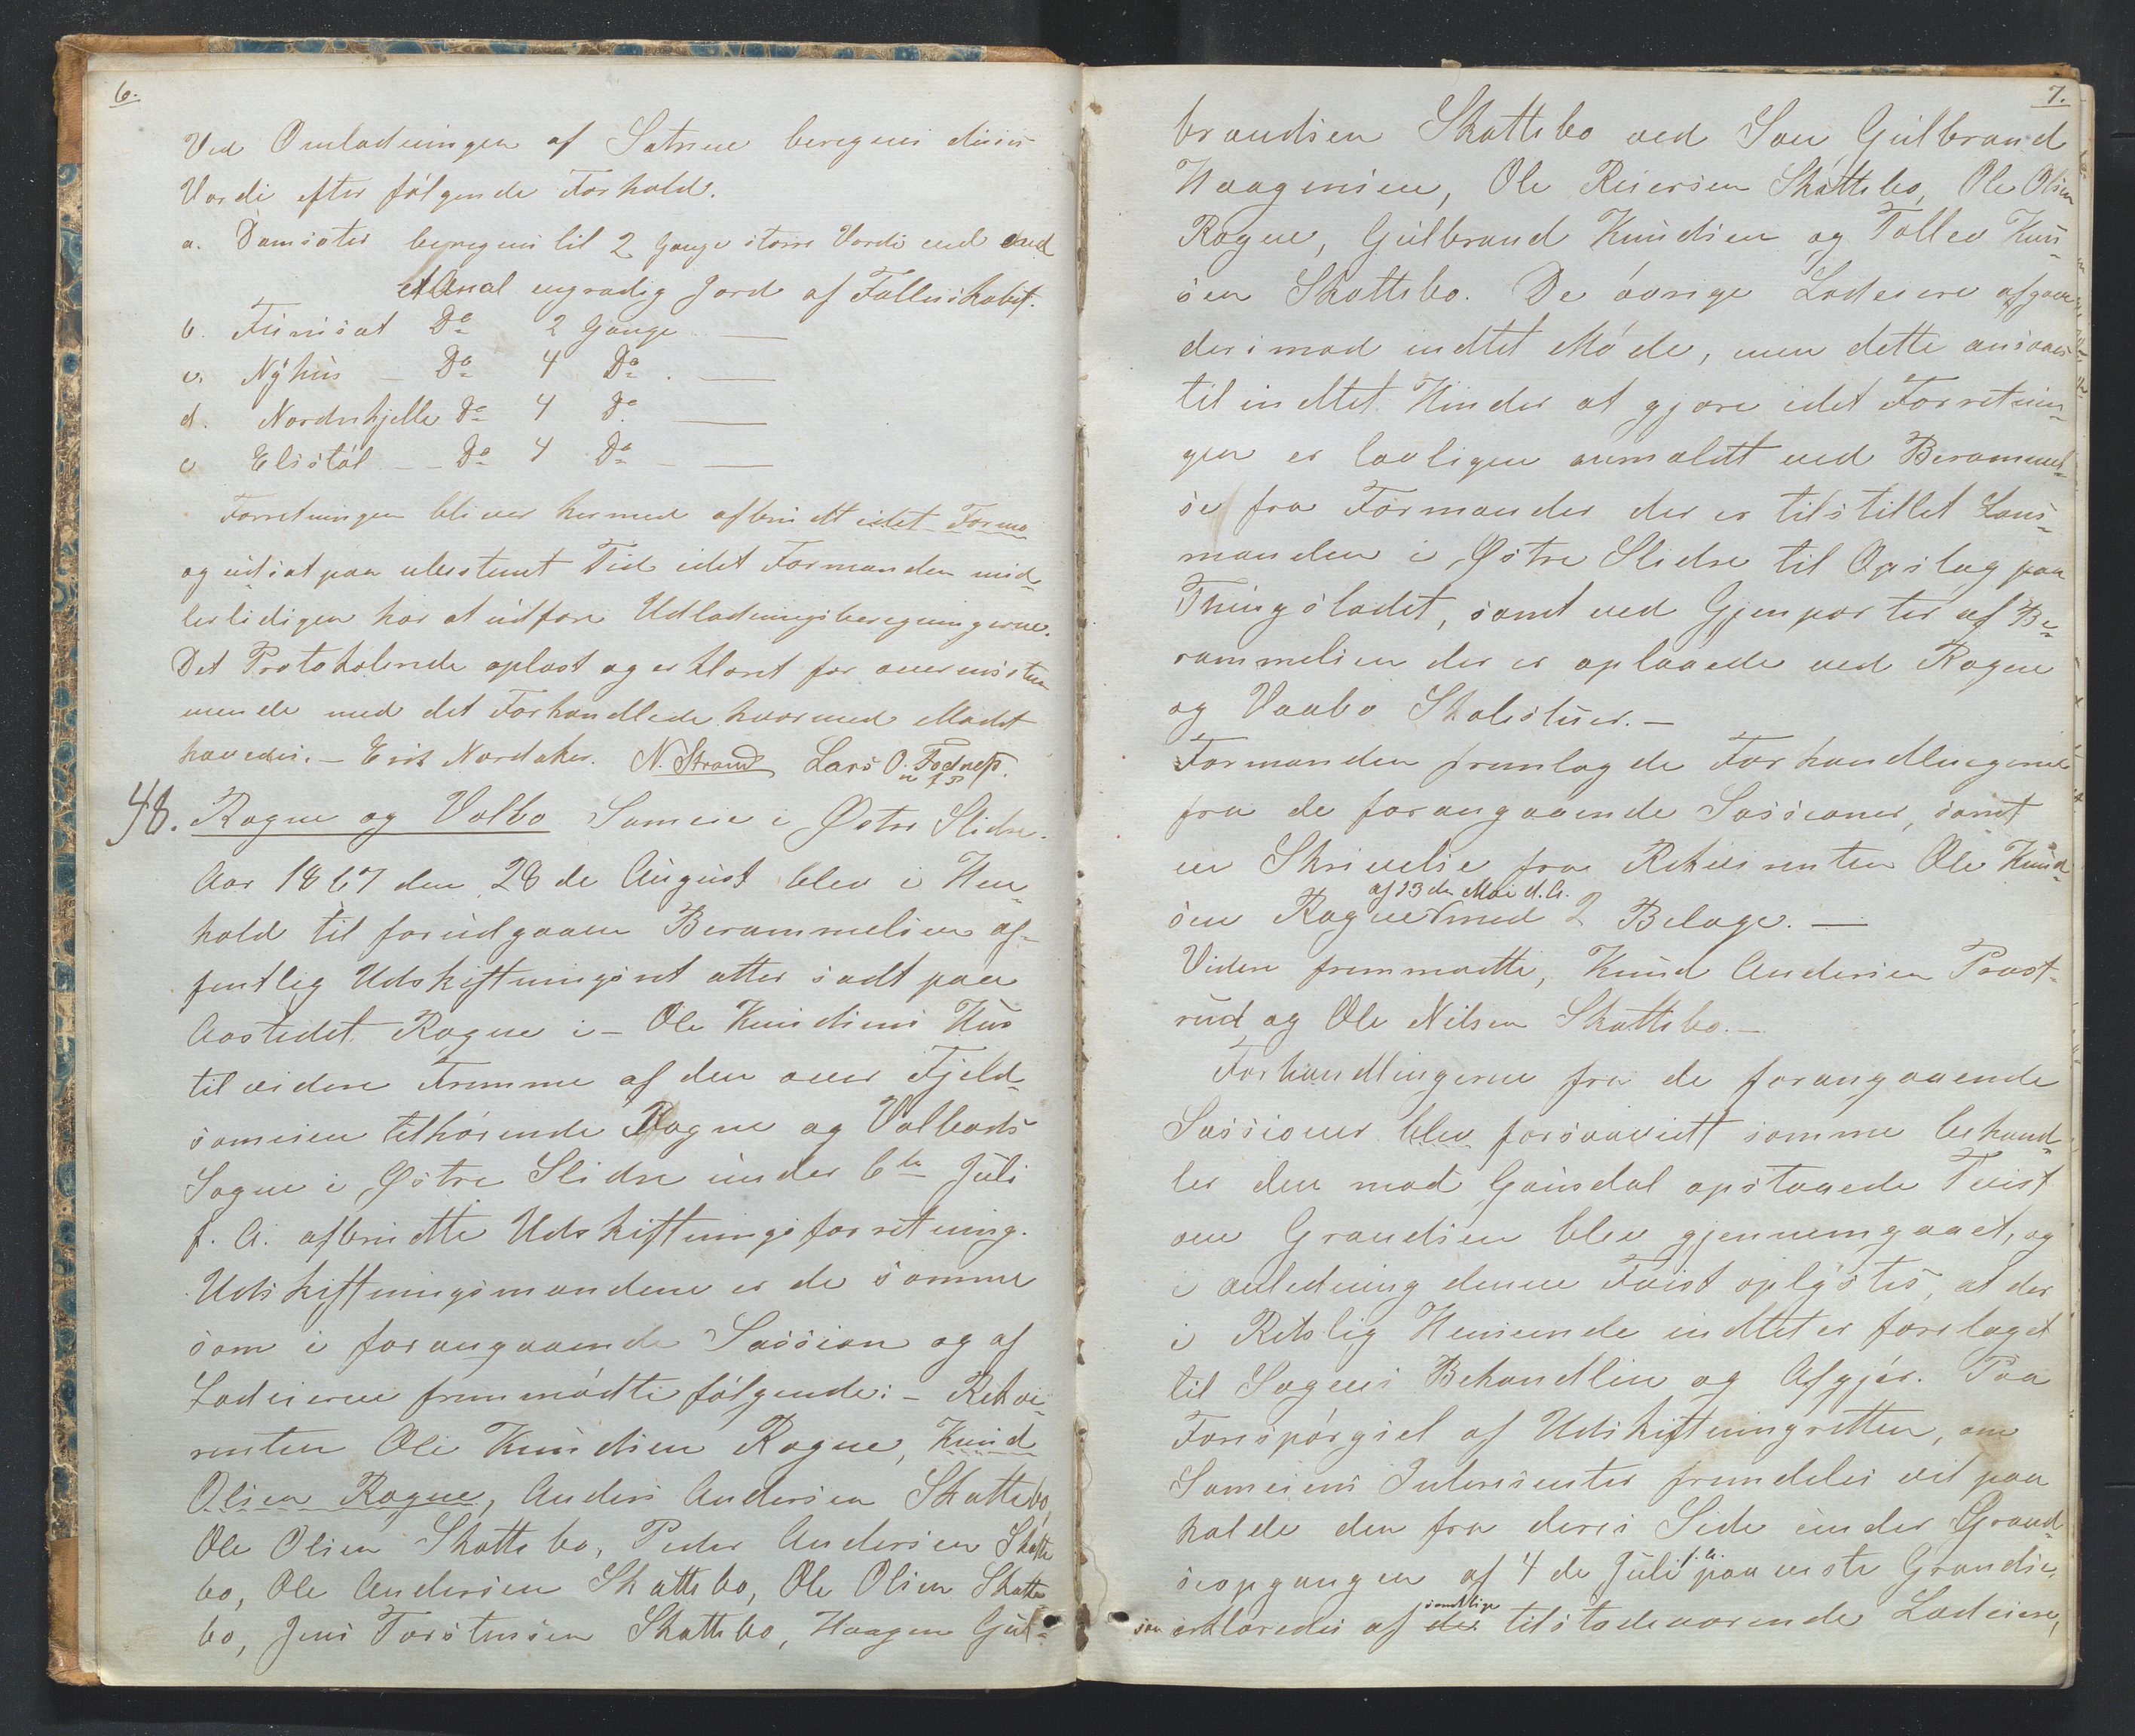 6.
Ved Omlodningen af Sætrene beregnes disses
Værdi efter følgende Forhold.
a. Damsæter beregnes til 2 Gange større Værdi end
et Areal engradig Jord af Fælleskabet.
b. Finsæt Do 2 Gange —
c. Nÿhus — Do 4 Do. —
d. Nordrekjelle Do 4 Do —
e Elsstøl — Do 4 Do — —
Forretningen bliver hermed afbrudt
og udsat paa ubestemt Tid idet Formanden mid-
lertidigen har at udføre Udlodningsberegningerne.
Det Protokolerede oplæst og erklæret for overenstem
mende med det Forhandlede hvormed Mødet
hævedes. — Erik Nordaker. N. Strand Lars O. Fodnes.
48. Rogne og Volbo Sameie i Østre Slidre.
Aar 1867 den 28de August blev i Hen-
hold til forudgaaen Berammelsen of-
fentlig Udskiftningsret atter sadt paa
Aastedet Rogne i — Ole Knudsens Hus
til videre Fremme af den over Fjeld-
sameien tilhørende Rogne og Volbods
Sogne i Østre Slidre under 6te Juli
f. A. afbrudte Udskiftningsforretning.
Udskiftningsmændene er de samme
som i forangaaende Session og af
Lodeierne fremmødte følgende: — Rekvi-
renten Ole Knudsen Rogne, Knud
Olsen Rogne, Anders Andersen Skattebo,
Ole Olsen Skattebo, Peder Andersen Skatte
bo, Ole Andersen Skattebo, Ole Olsen Skatte-
bo, Jens Torstensen Skattebo, Haagen Gul-
7.
brandsen Skattebo ved Søn Gulbrand
Haagensen, Ole Reiersen Skattebo, Ole Olsen
Rogne, Gulbrand Knudsen og Tollev Knu-
sen Skattebo. De øvrige Lodeiere afgav
derimod indtet Møde, men dette ansaaes
til indtet Hinder at gjøre idet Forretnin-
gen er lovligen anmeldt ved Berammel-
se fra Formanden der er tilstillet Læns-
manden i Østre Slidre til Opslag paa
Thingstedet, samt ved Gjenparter af Be-
rammelsen der er oplæste ved Rogne
og Vaabo Skolestuer. —
Formanden fremlagde Forhandlingerne
fra de forangaaende Sessioner, samt
en Skrivelse fra Rekvirenten Ole Knud-
sen Rogne af 13de Mai d. A. med 2 Belage. —
Videre fremmødte, Knud Andersen Præst-
rud og Ole Nilsen Skattebo. —
Forhandlingerne fra de forangaaende
Sessioner blev forsaavidt samme behand-
ler den mod Gausdal opstaaede Tvist
om Grændsen blev gjennemgaaet, og
i anledning denne Tvist oplÿstes, at der
i Retslig Henseende indtet er foretaget
til Sagens Behandlin og Afgjør. Paa
Forespørgsel af Udskiftningretten, om
Sameiens Interesenter fremdeles vil paa
holde den fra deres Side under Grænd-
seopgangen af 4de Juli f. A. paaviste Grændse,
saa erklæredes af samtlige tilstedeværende Lodeiere,